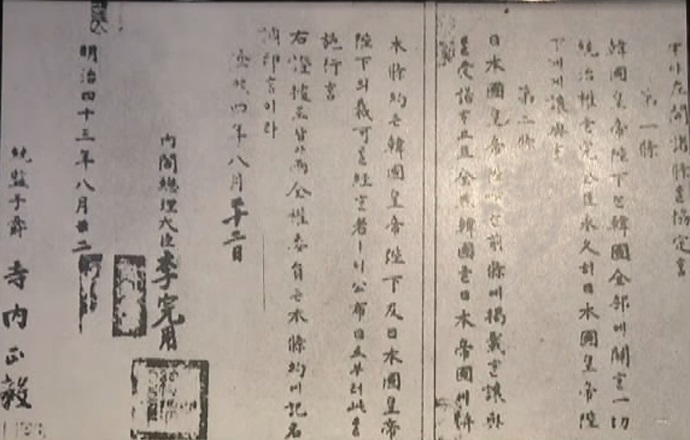 左開諸條를協定홈
第一條
韓國皇帝陛下는韓國全部에關한一切
統治權을完全且永久히日本國皇帝陛
下에게讓與홈
第二條
日本國皇帝陛下는前條에揭載한讓與
를受諾하고且全然韓國을日本帝國에併
本條約은韓國皇帝陛下及日本國皇帝
陛下의裁可를經한者ㅣ니公布日로부터此를
施行홈
右證據로삼아兩全權委員은本條約에記名
調印홈이라
隆熙四年八月二十二日
內閣總理大臣李完用
明治四十三年八月廿二
統監子爵 寺内正毅